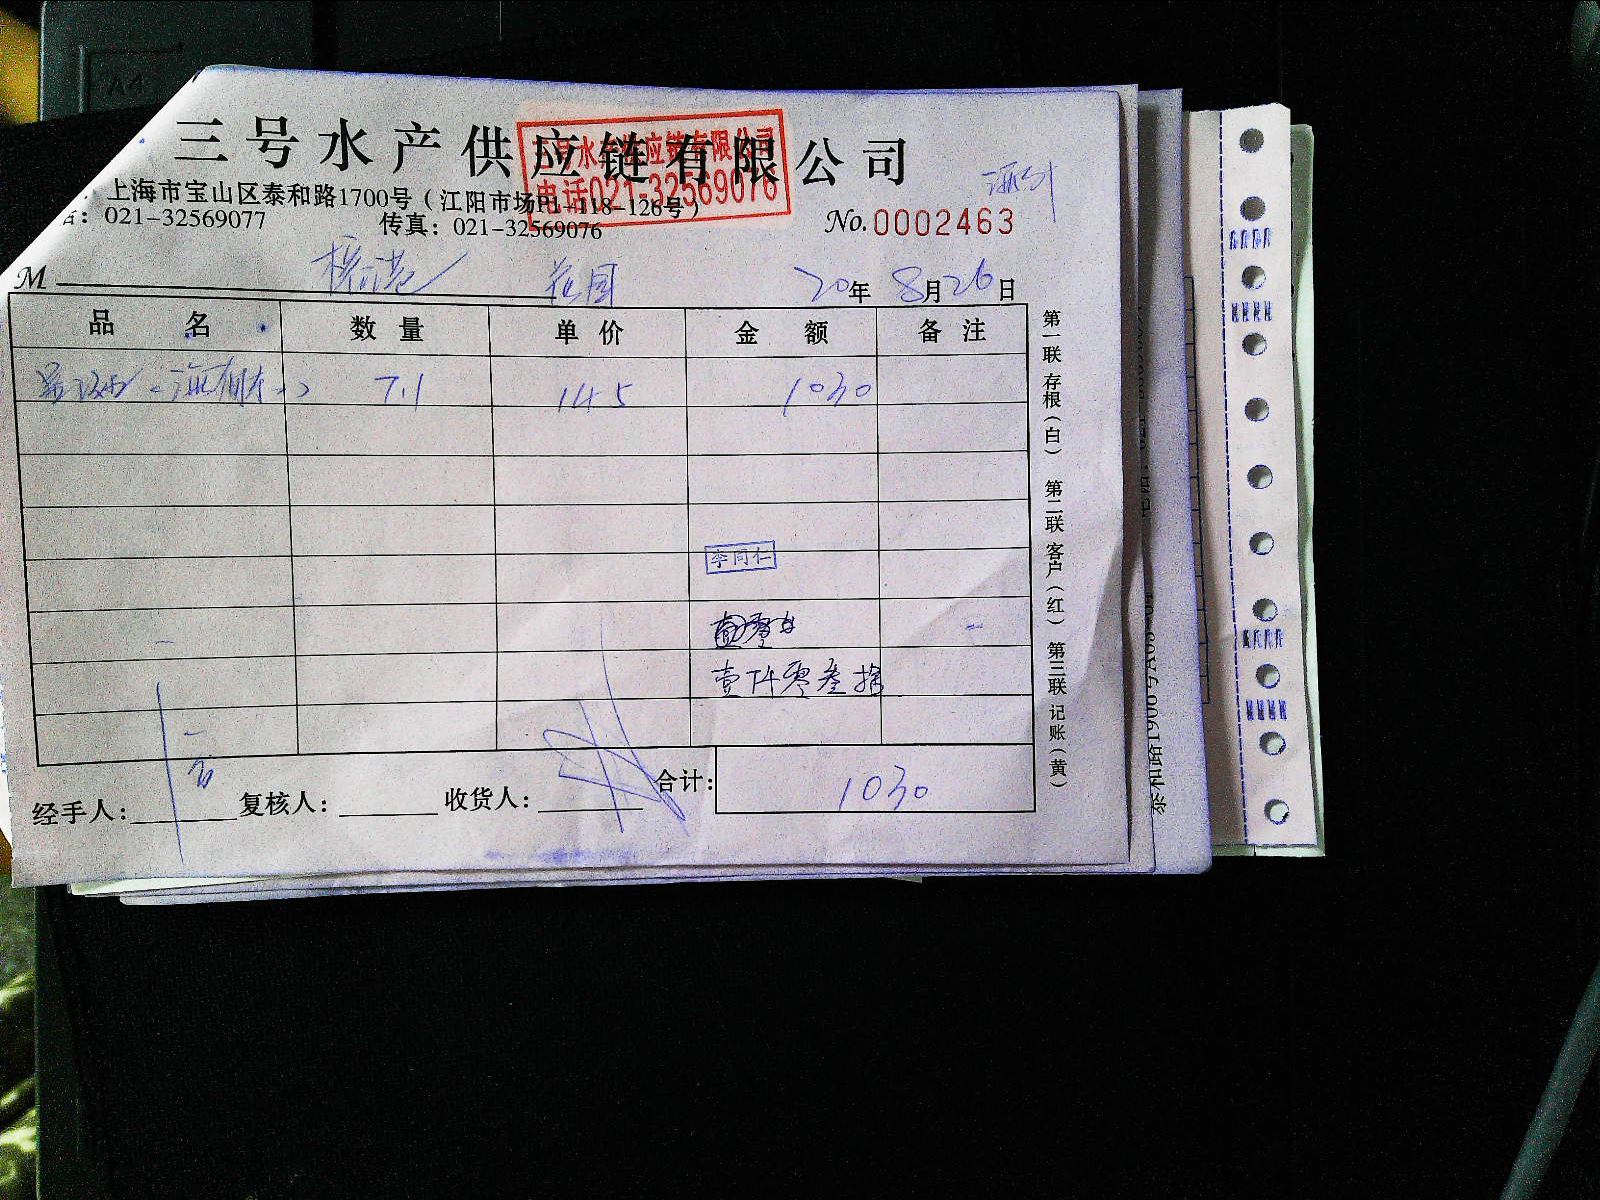 三号水产供应链有限公司
水产供应链有限公司
电话021-32569076
上海市宝山区泰和路1700号(江阳市场P1-118-126号)
021-32569077 传真: 021-32569076
No. 0002463
M 花园 20年 8月26日
品 名 数 量 单 价 金 额 备 注
7.1 145 1030
李同仁
壹仟零叁拾
经手人: 复核人: 收货人: 合计: 1030
第一联 存根(白) 第二联 客户(红) 第三联 记账(黄)
A4